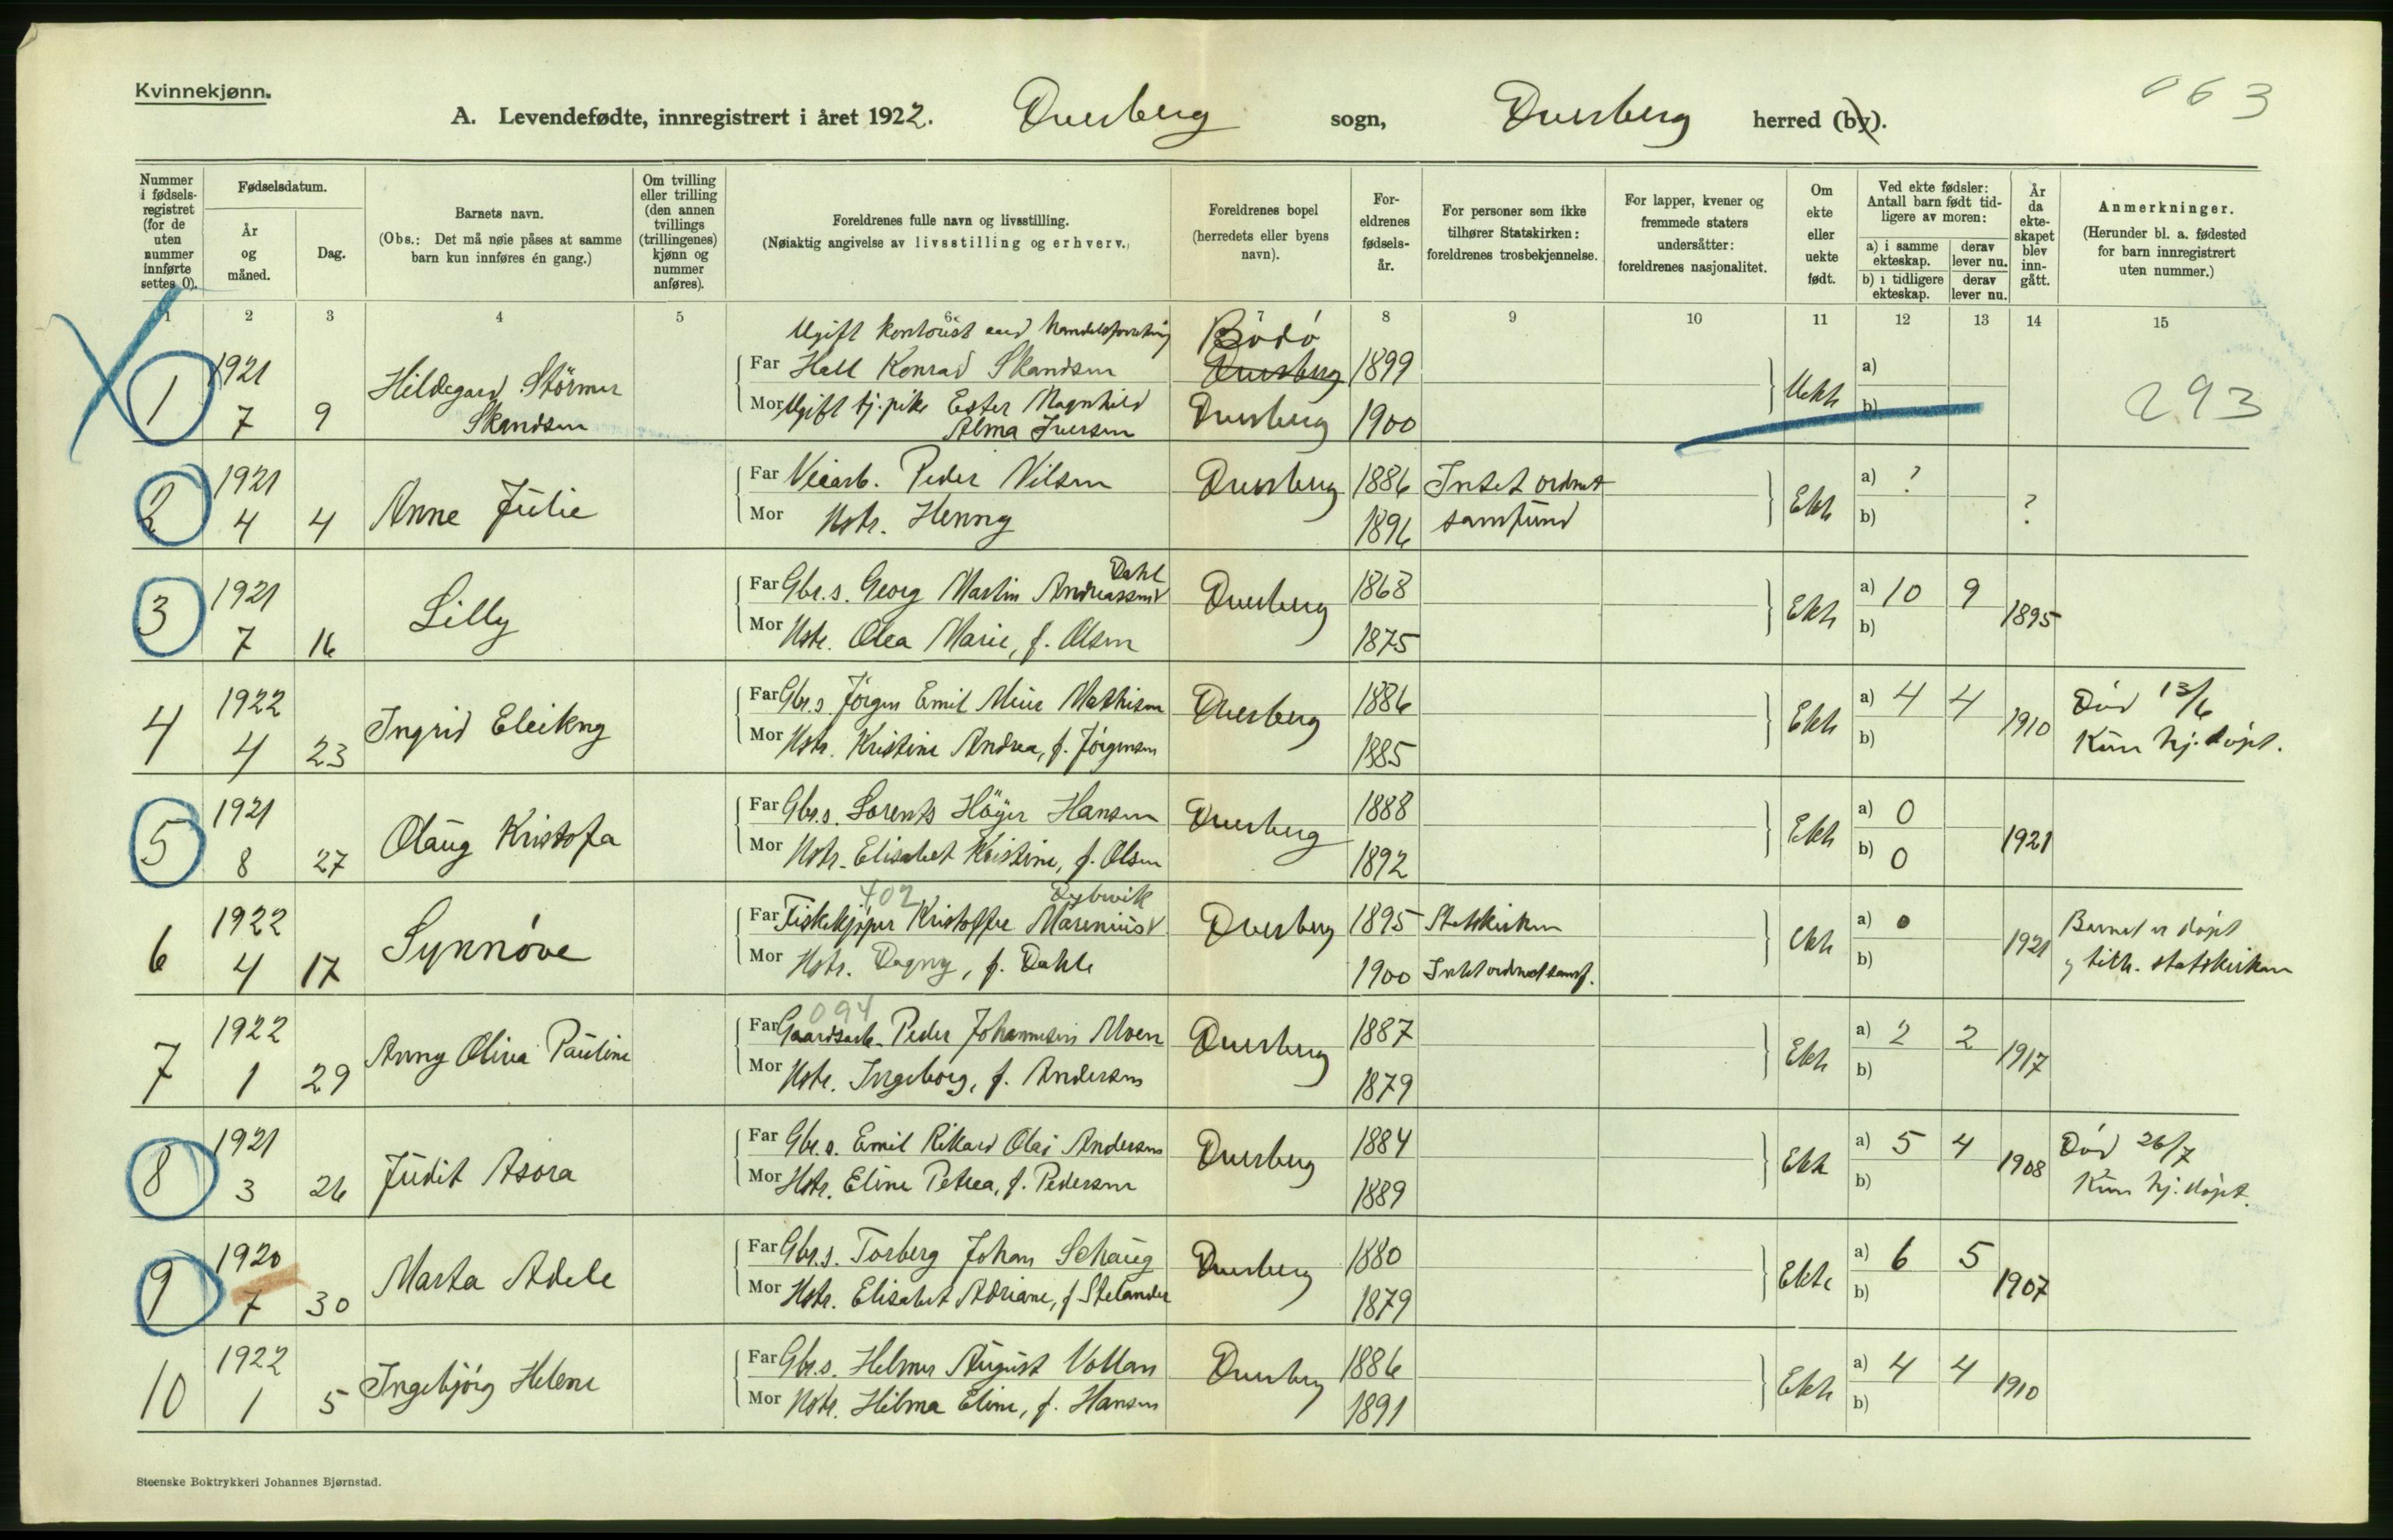 Kvinnekjønn.
063
A. Levendefødte, innregistrert i året 1922. Dverberg sogn, Dverberg herred (by).
Nummer i fødselsregistret (for de uten nummer innførte settes 0).
Fødselsdatum.
År og måned.
Dag.
Barnets navn.
(Obs.: Det må nøie påses at samme barn kun innføres én gang.)
Om tvilling eller trilling (den annen tvillings (trillingenes) kjønn og nummer anføres).
Foreldrenes fulle navn og livsstilling.
(Nøiaktig angivelse av livsstilling og erhverv.)
Foreldrenes bopel (herredets eller byens navn).
Foreldrenes fødselsår.
For personer som ikke tilhører Statskirken: foreldrenes trosbekjennelse.
For lapper, kvener og fremmede staters undersåtter: foreldrenes nasjonalitet.
Om ekte eller uekte født.
Ved ekte fødsler: Antall barn født tidligere av moren:
a) i samme ekteskap. derav lever nu.
b) i tidligere ekteskap. derav lever nu.
År da ekteskapet blev inngått.
Anmerkninger.
(Herunder bl. a. fødested for barn innregistrert uten nummer.)
1 2 3 4 5 6 8 9 10 11 12 13 14 15
Ugift kontorist Bödó
1 1921 Hildegard Störmer Far Hall Konrad Skandsen Dverberg 1899 Uekte a) 293
7 9 Skandsen Mor Ugift tj.pike Ester Magnhild Dverberg 1900 b)
Alma Iversen
2 1921 Anne Julie Far Veiarb. Peder Nilsen Dverberg 1886 Intet ordnet Ekte a) ?
4 4 Mor Hstr. Henny 1896 samfund b) ?
Dahl
3 1921 Lilly Far Gbr.s. Georg Martin Andreassen Dverberg 1868 Ekte a) 10 9 1895
7 16 Mor Hstr. Olea Marie, f. Olsen 1875 b)
4 1922 Ingrid Eleikny Far Gbr.s. Jörgen Emil Meier Mathisen Dverberg 1886 Ekte a) 4 4 1910 Död 13/6
4 23 Mor Hstr. Kristine Andrea, f. Jörgensen 1885 b) Kun hj.döpt.
5 1921 Olaug Kristofa Far Gbr.s. Lorents Höyer Hansen Dverberg 1888 Ekte a) 0 1921
8 27 Mor Hstr. Elisabet Kristine, f. Olsen 1892 b) 0
402 Dybwik
6 1922 Synnóve Far Fiskekjöper Kristoffer Marenius Dverberg 1895 Statskirken Ekte a) 0 1921 Barnet er döpt
4 17 Mor Hstr. Dagny, f. Dahle 1900 Intet ordnet samf. b) tilh. statskirken
094
7 1922 Anny Olivia Pauline Far Gaardsarb. Peder Johannesen Moen Dverberg 1887 Ekte a) 2 2 1917
1 29 Mor Hstr. Ingeborg, f. Andersen 1879 b)
8 1921 Judit Asora Far Gbr.s. Emil Rikard Olai Andersen Dverberg 1884 Ekte a) 5 4 1908 Död 26/7
3 26 Mor Hstr. Eline Petrea, f. Pedersen 1889 b) Kun hj.döpt.
9 1920 Marta Adele Far Gbr.s. Torberg Johan Schaug Dverberg 1880 Ekte a) 6 5 1907
7 30 Mor Hstr. Elisabet Adriane, f. Stelander 1879 b)
10 1922 Ingebjörg Helene Far Gbr.s. Helmer August Vollan Dverberg 1886 Ekte a) 4 4 1910
1 5 Mor Hstr. Hilma Eline, f. Hansen 1891 b)
Steenske Boktrykkeri Johannes Bjørnstad.